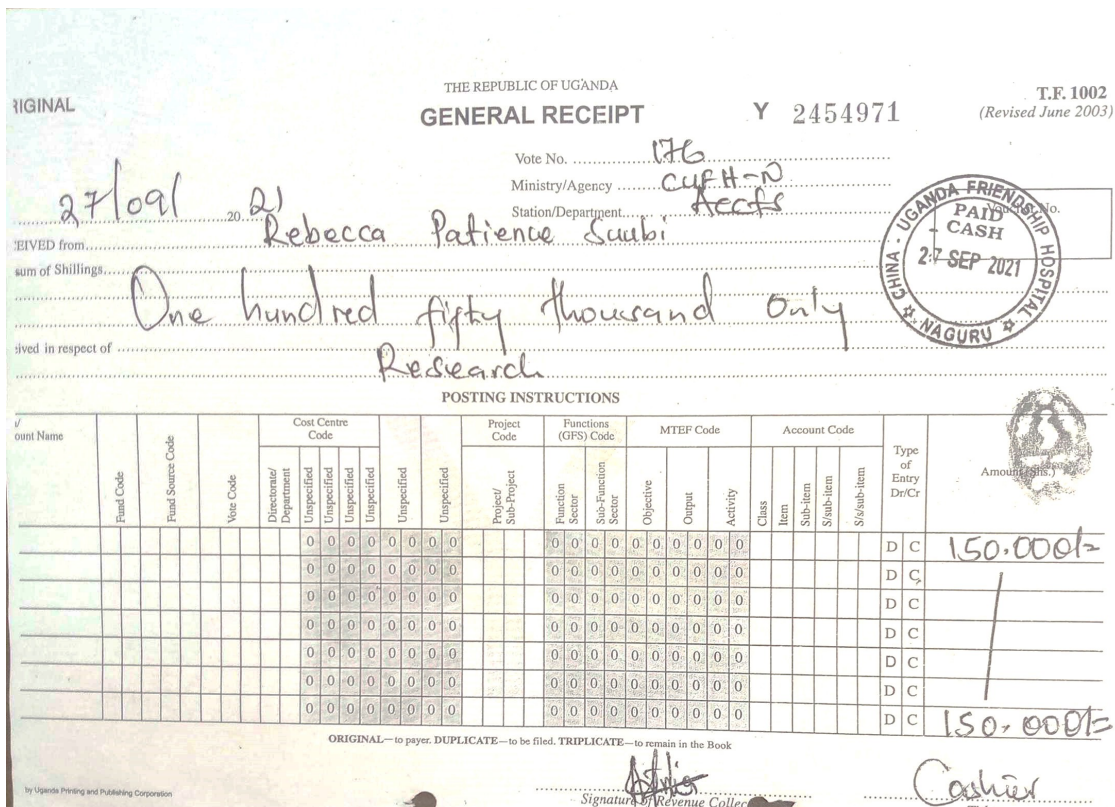 THE REPUBLIC OF UGANDA
RIGINAL
GENERAL RECEIPT
Y 2454971
T.F. 1002
(Revised June 2003)
Vote No. 176
Ministry/Agency CUFH-N
Station/Department Accts
27/09/ 20 21
EIVED from Rebecca Patience Suubi
sum of Shillings
One hundred fifty thousand only
ived in respect of
Research
No.
CHINA - UGANDA FRIENDSHIP HOSPITAL
PAID
CASH
27 SEP 2021
NAGURU
POSTING INSTRUCTIONS
ount Name
Fund Code
Fund Source Code
Vote Code
Cost Centre Code
Directorate/ Department
Unspecified
Unspecified
Unspecified
Unspecified
Unspecified
Unspecified
Project Code
Project/ Sub-Project
Functions (GFS) Code
Function Sector
Sub-Function Sector
MTEF Code
Objective
Output
Activity
Account Code
Class
Item
Sub-item
S/sub-item
S/s/sub-item
Type of Entry Dr/Cr
Amount (Shs.)
0 0 0 0 0 0 0 0 0 0 0 0 0 0 0 0 D C 150.000/=
0 0 0 0 0 0 0 0 0 0 0 0 0 0 0 0 D C
0 0 0 0 0 0 0 0 0 0 0 0 0 0 0 0 D C
0 0 0 0 0 0 0 0 0 0 0 0 0 0 0 0 D C
0 0 0 0 0 0 0 0 0 0 0 0 0 0 0 0 D C
0 0 0 0 0 0 0 0 0 0 0 0 0 0 0 0 D C
0 0 0 0 0 0 0 0 0 0 0 0 0 0 0 0 D C 150.000/=
ORIGINAL—to payer. DUPLICATE—to be filed. TRIPLICATE—to remain in the Book
by Uganda Printing and Publishing Corporation
Signature of Revenue Collec
Cashier